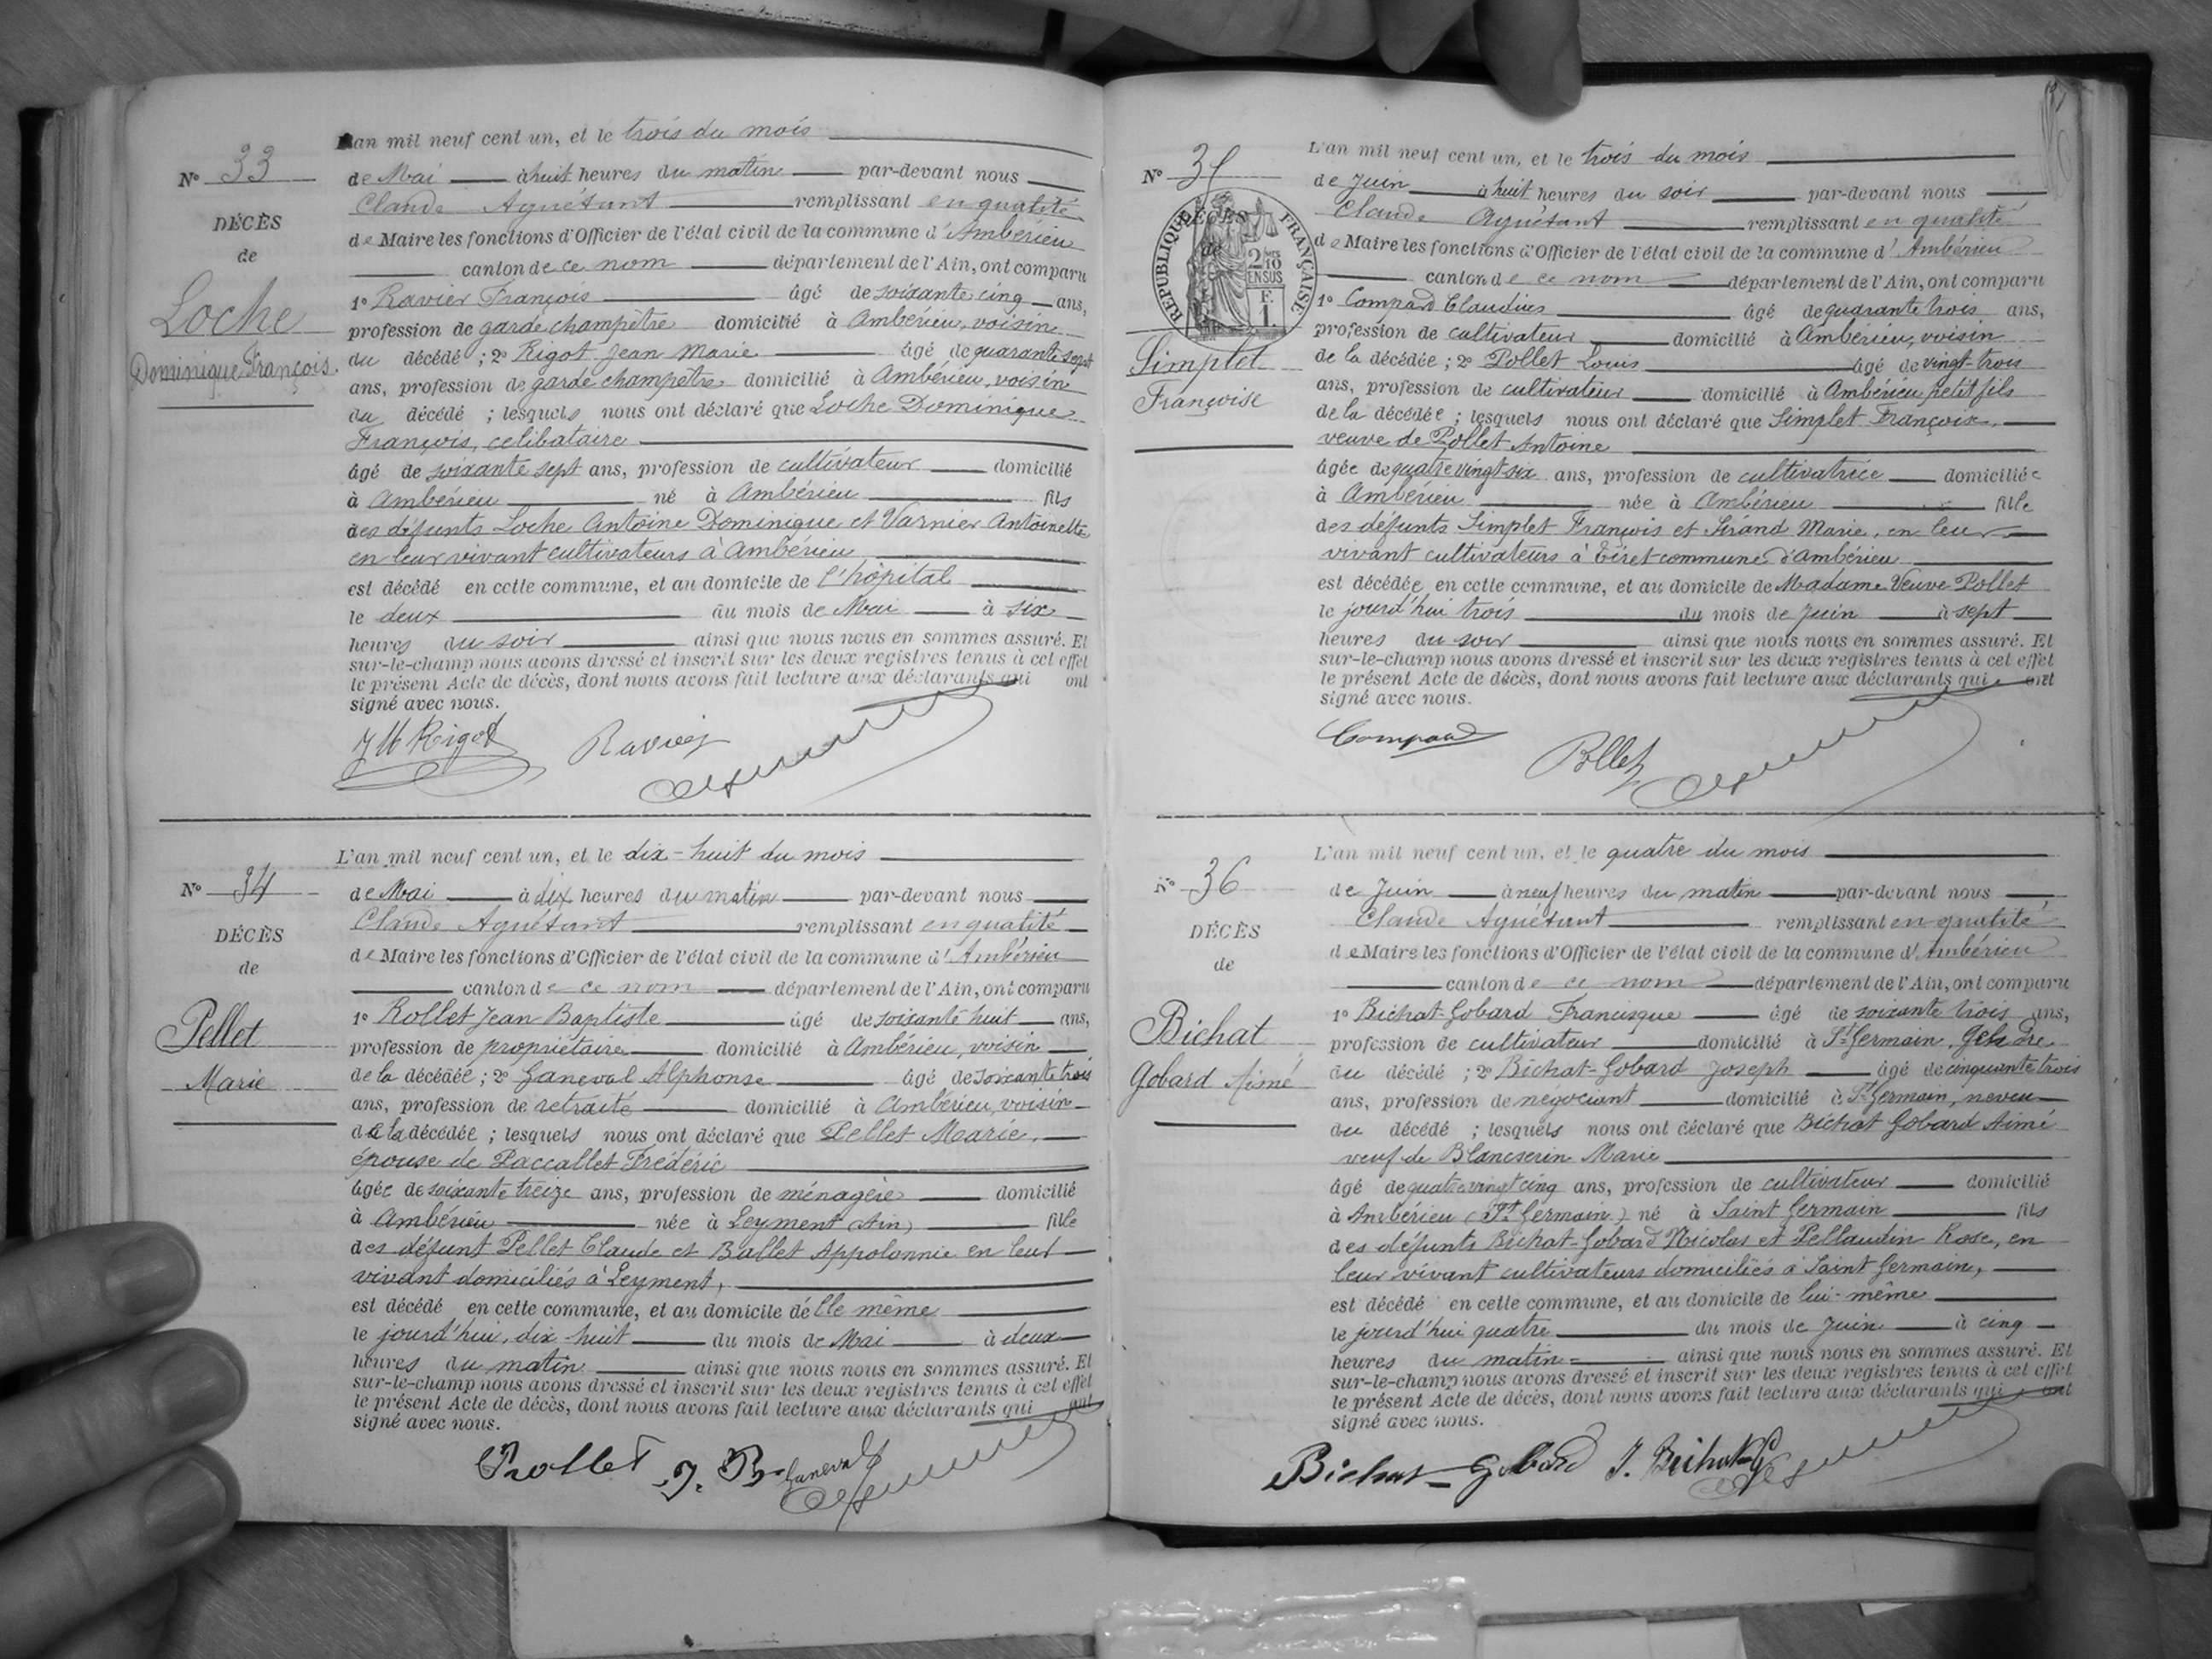 N° 33
DÉCÈS
de
Loche
Dominique François.
L'an mil neuf cent un, et le trois du mois
de Mai à huit heures du matin par-devant nous
Claude Aguétant remplissant en qualité
de Maire les fonctions d'Officier de l'état civil de la commune d'Ambérieu
canton de ce nom département de l'Ain, ont comparu
1° Ravier François âgé de soixante cinq ans,
profession de garde champêtre domicilié à Ambérieu, voisin
du décédé ; 2° Rigot Jean Marie âgé de quarante sept
ans, profession de garde champêtre domicilié à Ambérieu, voisin
du décédé ; lesquels nous ont déclaré que Loche Dominique
François, celibataire
âgé de soixante sept ans, profession de cultivateur domicilié
à Ambérieu né à Ambérieu fils
des défunts Loche Antoine Dominique et Varnier Antoinette
en leur vivant cultivateurs à Ambérieu
est décédé en cette commune, et au domicile de l'hôpital
le deux du mois de Mai à six
heures du soir ainsi que nous nous en sommes assuré. Et
sur-le-champ nous avons dressé et inscrit sur les deux registres tenus à cet effet
le présent Acte de décès, dont nous avons fait lecture aux déclarants qui ont
signé avec nous.
JM Rigot Ravier
N° 34
DÉCÈS
de
Pellet
Marie
L'an mil neuf cent un, et le dix-huit du mois
de Mai à dix heures du matin par-devant nous
Claude Aguétant remplissant en qualité
de Maire les fonctions d'Officier de l'état civil de la commune d'Ambérieu
canton de ce nom département de l'Ain, ont comparu
1° Rollet Jean Baptiste âgé de soixante huit ans,
profession de propriétaire domicilié à Ambérieu, voisin
de la décédée ; 2° Ganeval Alphonse âgé de soixante trois
ans, profession de retraité domicilié à Ambérieu, voisin
de la décédée ; lesquels nous ont déclaré que Pellet Marie,
épouse de Paccallet Frédéric
âgée de soixante treize ans, profession de ménagère domicilié
à Ambérieu née à Leyment (Ain) fille
des défunt Pellet Claude et Ballet Appolonnie en leur
vivant domiciliés à Leyment,
est décédé en cette commune, et au domicile d'elle même
le jourd'hui, dix huit du mois de Mai à deux
heures du matin ainsi que nous nous en sommes assuré. Et
sur-le-champ nous avons dressé et inscrit sur les deux registres tenus à cet effet
le présent Acte de décès, dont nous avons fait lecture aux déclarants qui ont
signé avec nous.
Rollet J. B. Ganeval
N° 35
DÉCÈS
de
RÉPUBLIQUE FRANÇAISE
2/10 EN SUS
F.
1.
Simplet
Françoise
L'an mil neuf cent un, et le trois du mois
de Juin à huit heures du soir par-devant nous
Claude Aguétant remplissant en qualité
de Maire les fonctions d'Officier de l'état civil de la commune d'Ambérieu
canton de ce nom département de l'Ain, ont comparu
1° Compard Claudius âgé de quarante trois ans,
profession de cultivateur domicilié à Ambérieu, voisin
de la décédée ; 2° Pollet Louis âgé de vingt-trois
ans, profession de cultivateur domicilié à Ambérieu petit fils
de la décédée ; lesquels nous ont déclaré que Simplet Françoise,
veuve de Pollet Antoine
âgée de quatre vingt six ans, profession de cultivatrice domiciliée
à Ambérieu née à Ambérieu fille
des défunts Simplet François et Sirand Marie, en leur
vivant cultivateurs à Tiret commune d'Ambérieu
est décédée en cette commune, et au domicile de Madame Veuve Pollet
le jourd'hui trois du mois de Juin à sept
heures du soir ainsi que nous nous en sommes assuré. Et
sur-le-champ nous avons dressé et inscrit sur les deux registres tenus à cet effet
le présent Acte de décès, dont nous avons fait lecture aux déclarants qui ont
signé avec nous.
Compard Pollet
N° 36
DÉCÈS
de
Bichat
Gobard Aimé
L'an mil neuf cent un, et le quatre du mois
de Juin à neuf heures du matin par-devant nous
Claude Aguétant remplissant en qualité
de Maire les fonctions d'Officier de l'état civil de la commune d'Ambérieu
canton de ce nom département de l'Ain, ont comparu
1° Bichat-Gobard Francisque âgé de soixante trois ans,
profession de cultivateur domicilié à St Germain, gendre
du décédé ; 2° Bichat-Gobard Joseph âgé de cinquante trois
ans, profession de négociant domicilié à St Germain, neveu
du décédé ; lesquels nous ont déclaré que Bichat Gobard Aimé
veuf de Blancserin Marie
âgé de quatre vingt cinq ans, profession de cultivateur domicilié
à Ambérieu (St Germain) né à Saint Germain fils
des défunts Bichat-Gobard Nicolas et Pellaudin Rose, en
leur vivant cultivateurs domiciliés à Saint Germain,
est décédé en cette commune, et au domicile de lui-même
le jourd'hui quatre du mois de Juin à cinq
heures du matin ainsi que nous nous en sommes assuré. Et
sur-le-champ nous avons dressé et inscrit sur les deux registres tenus à cet effet
le présent Acte de décès, dont nous avons fait lecture aux déclarants qui ont
signé avec nous.
Bichat-Gobard J. Bichat